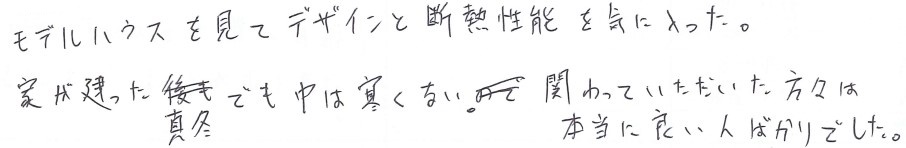 モデルハウスを見てデザインと断熱性能を気に入った。
家が建った後も真冬でも中は寒くない。ので 関わっていただいた方々は
本当に良い人ばかりでした。